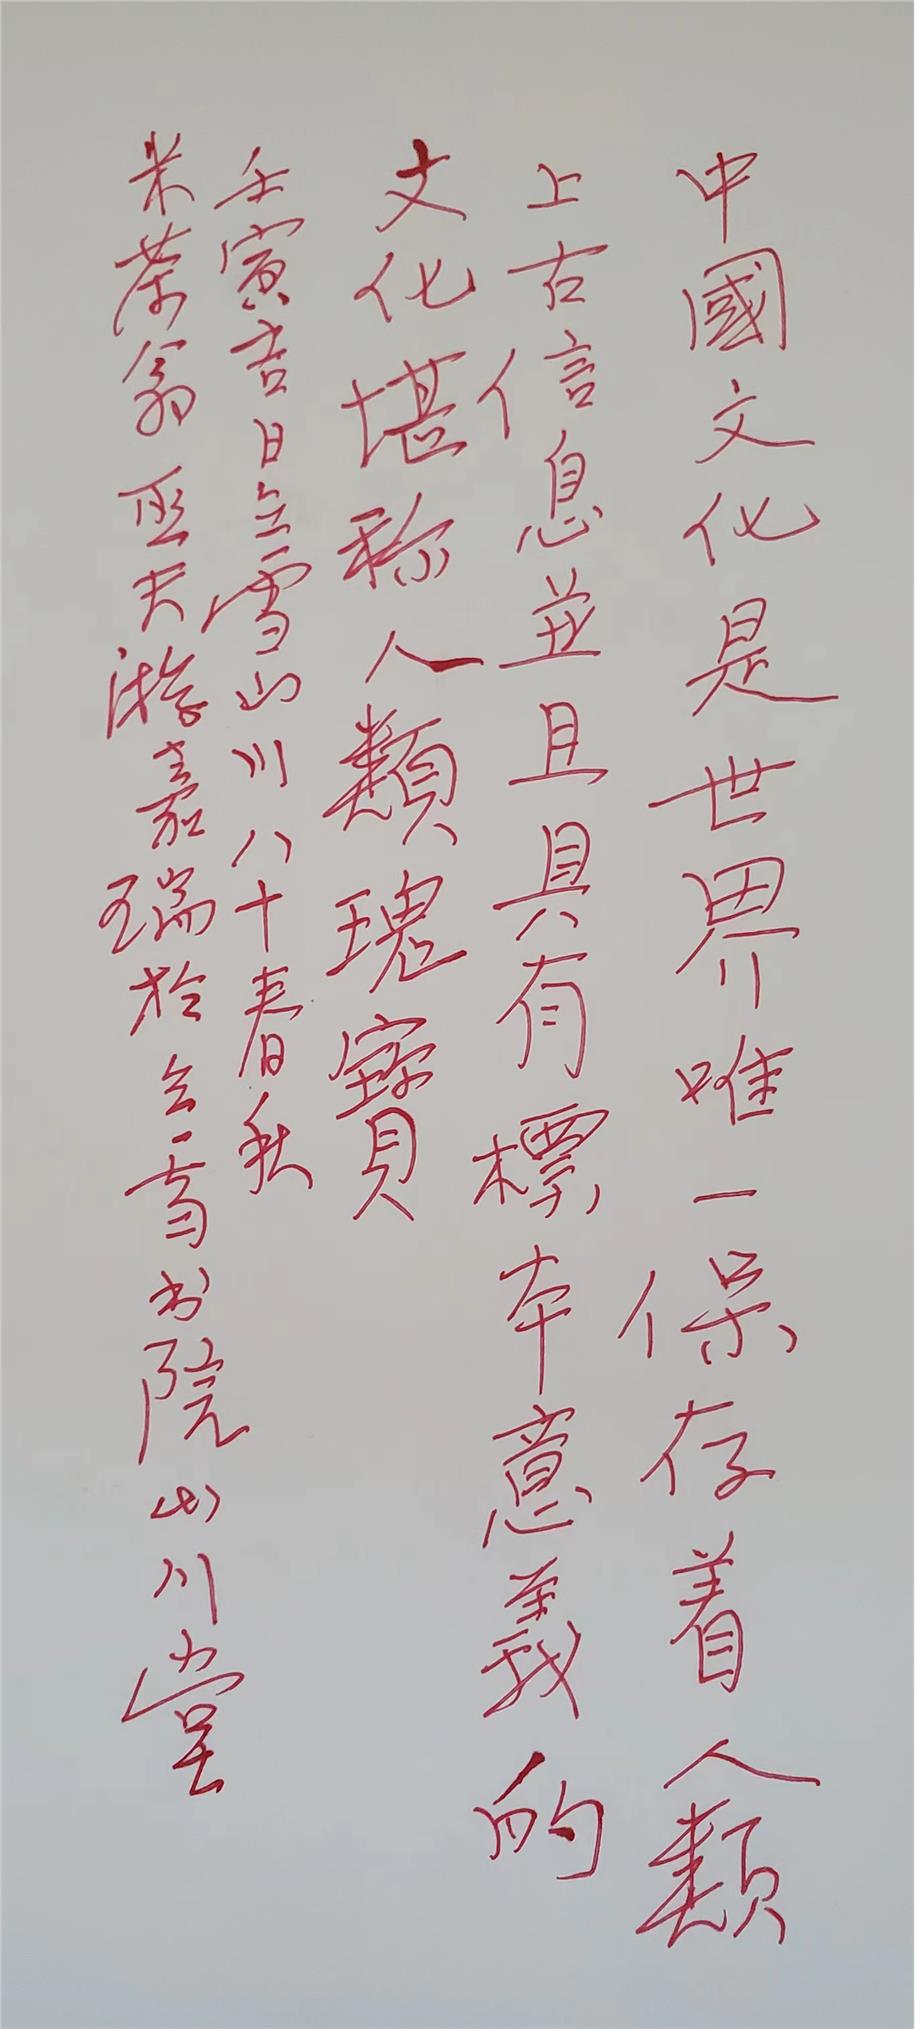 中國文化是世界唯一保存着人類
上古信息並且具有標本意義的
文化堪称人類瑰寶
壬寅吉日立雪山川八十春秋
米荣翁巫夫 嘉瑞於立雪书院山川堂